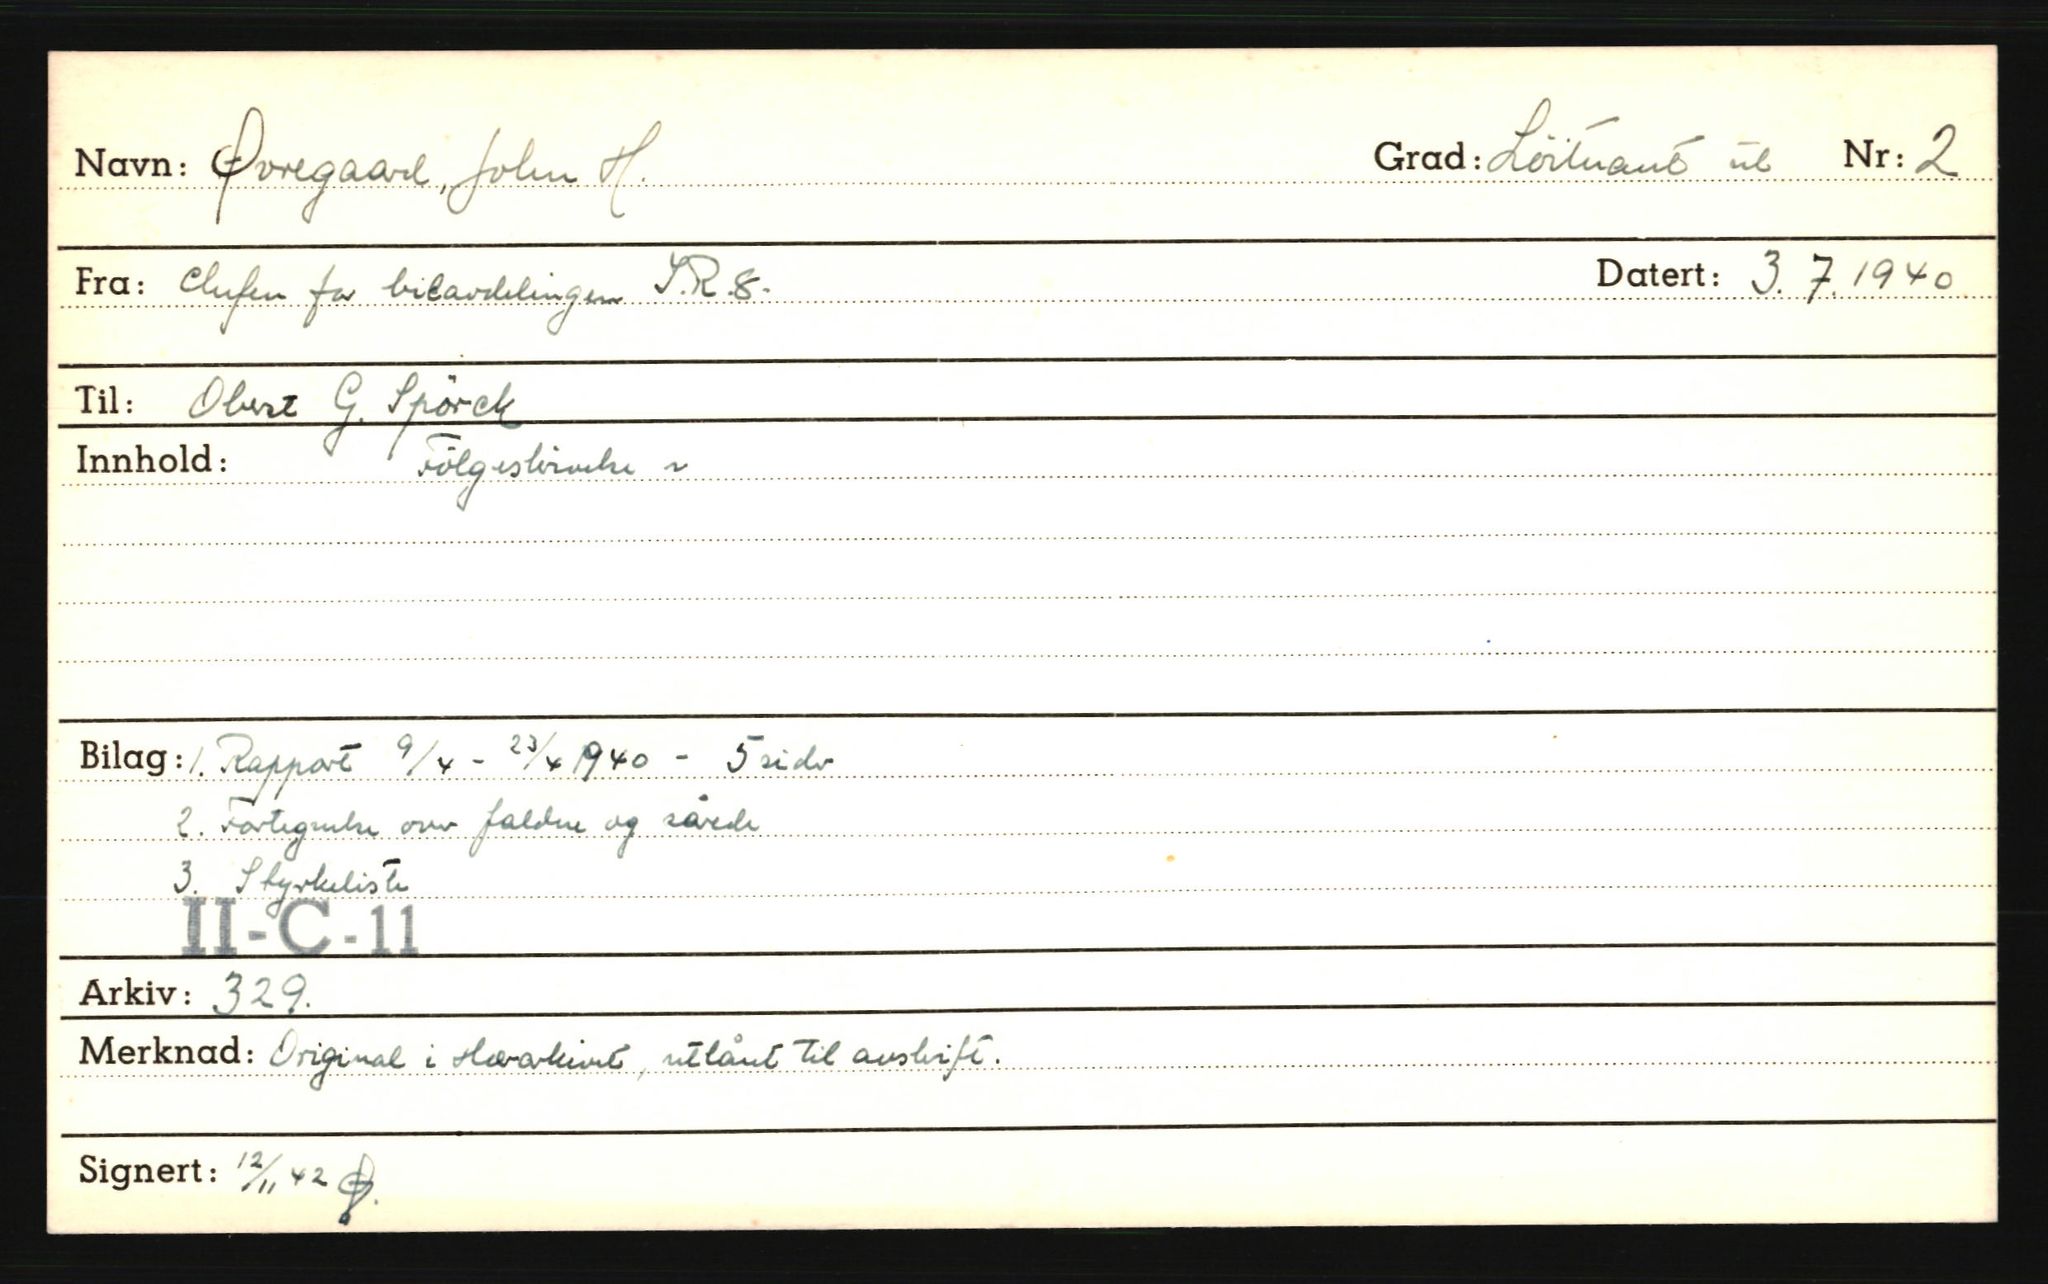 Navn: Øvregaard, John H. Grad: Löitnant ul Nr: 2
Fra: Chefen for bilavdelingen I.R.8. Datert: 3.7.1940
Til: Oberst G. Spörck
Innhold: Fölgeskrivelse
Bilag: 1. Rapport 9/4 - 23/4 1940 - 5 sider
2. Fortegnelse over faldne og sårede
3. Styrkeliste
II-C-11
Arkiv: 329.
Merknad: Original i Hærarkivet, utlånt til avskrift.
Signert: 12/11 42 Ø.